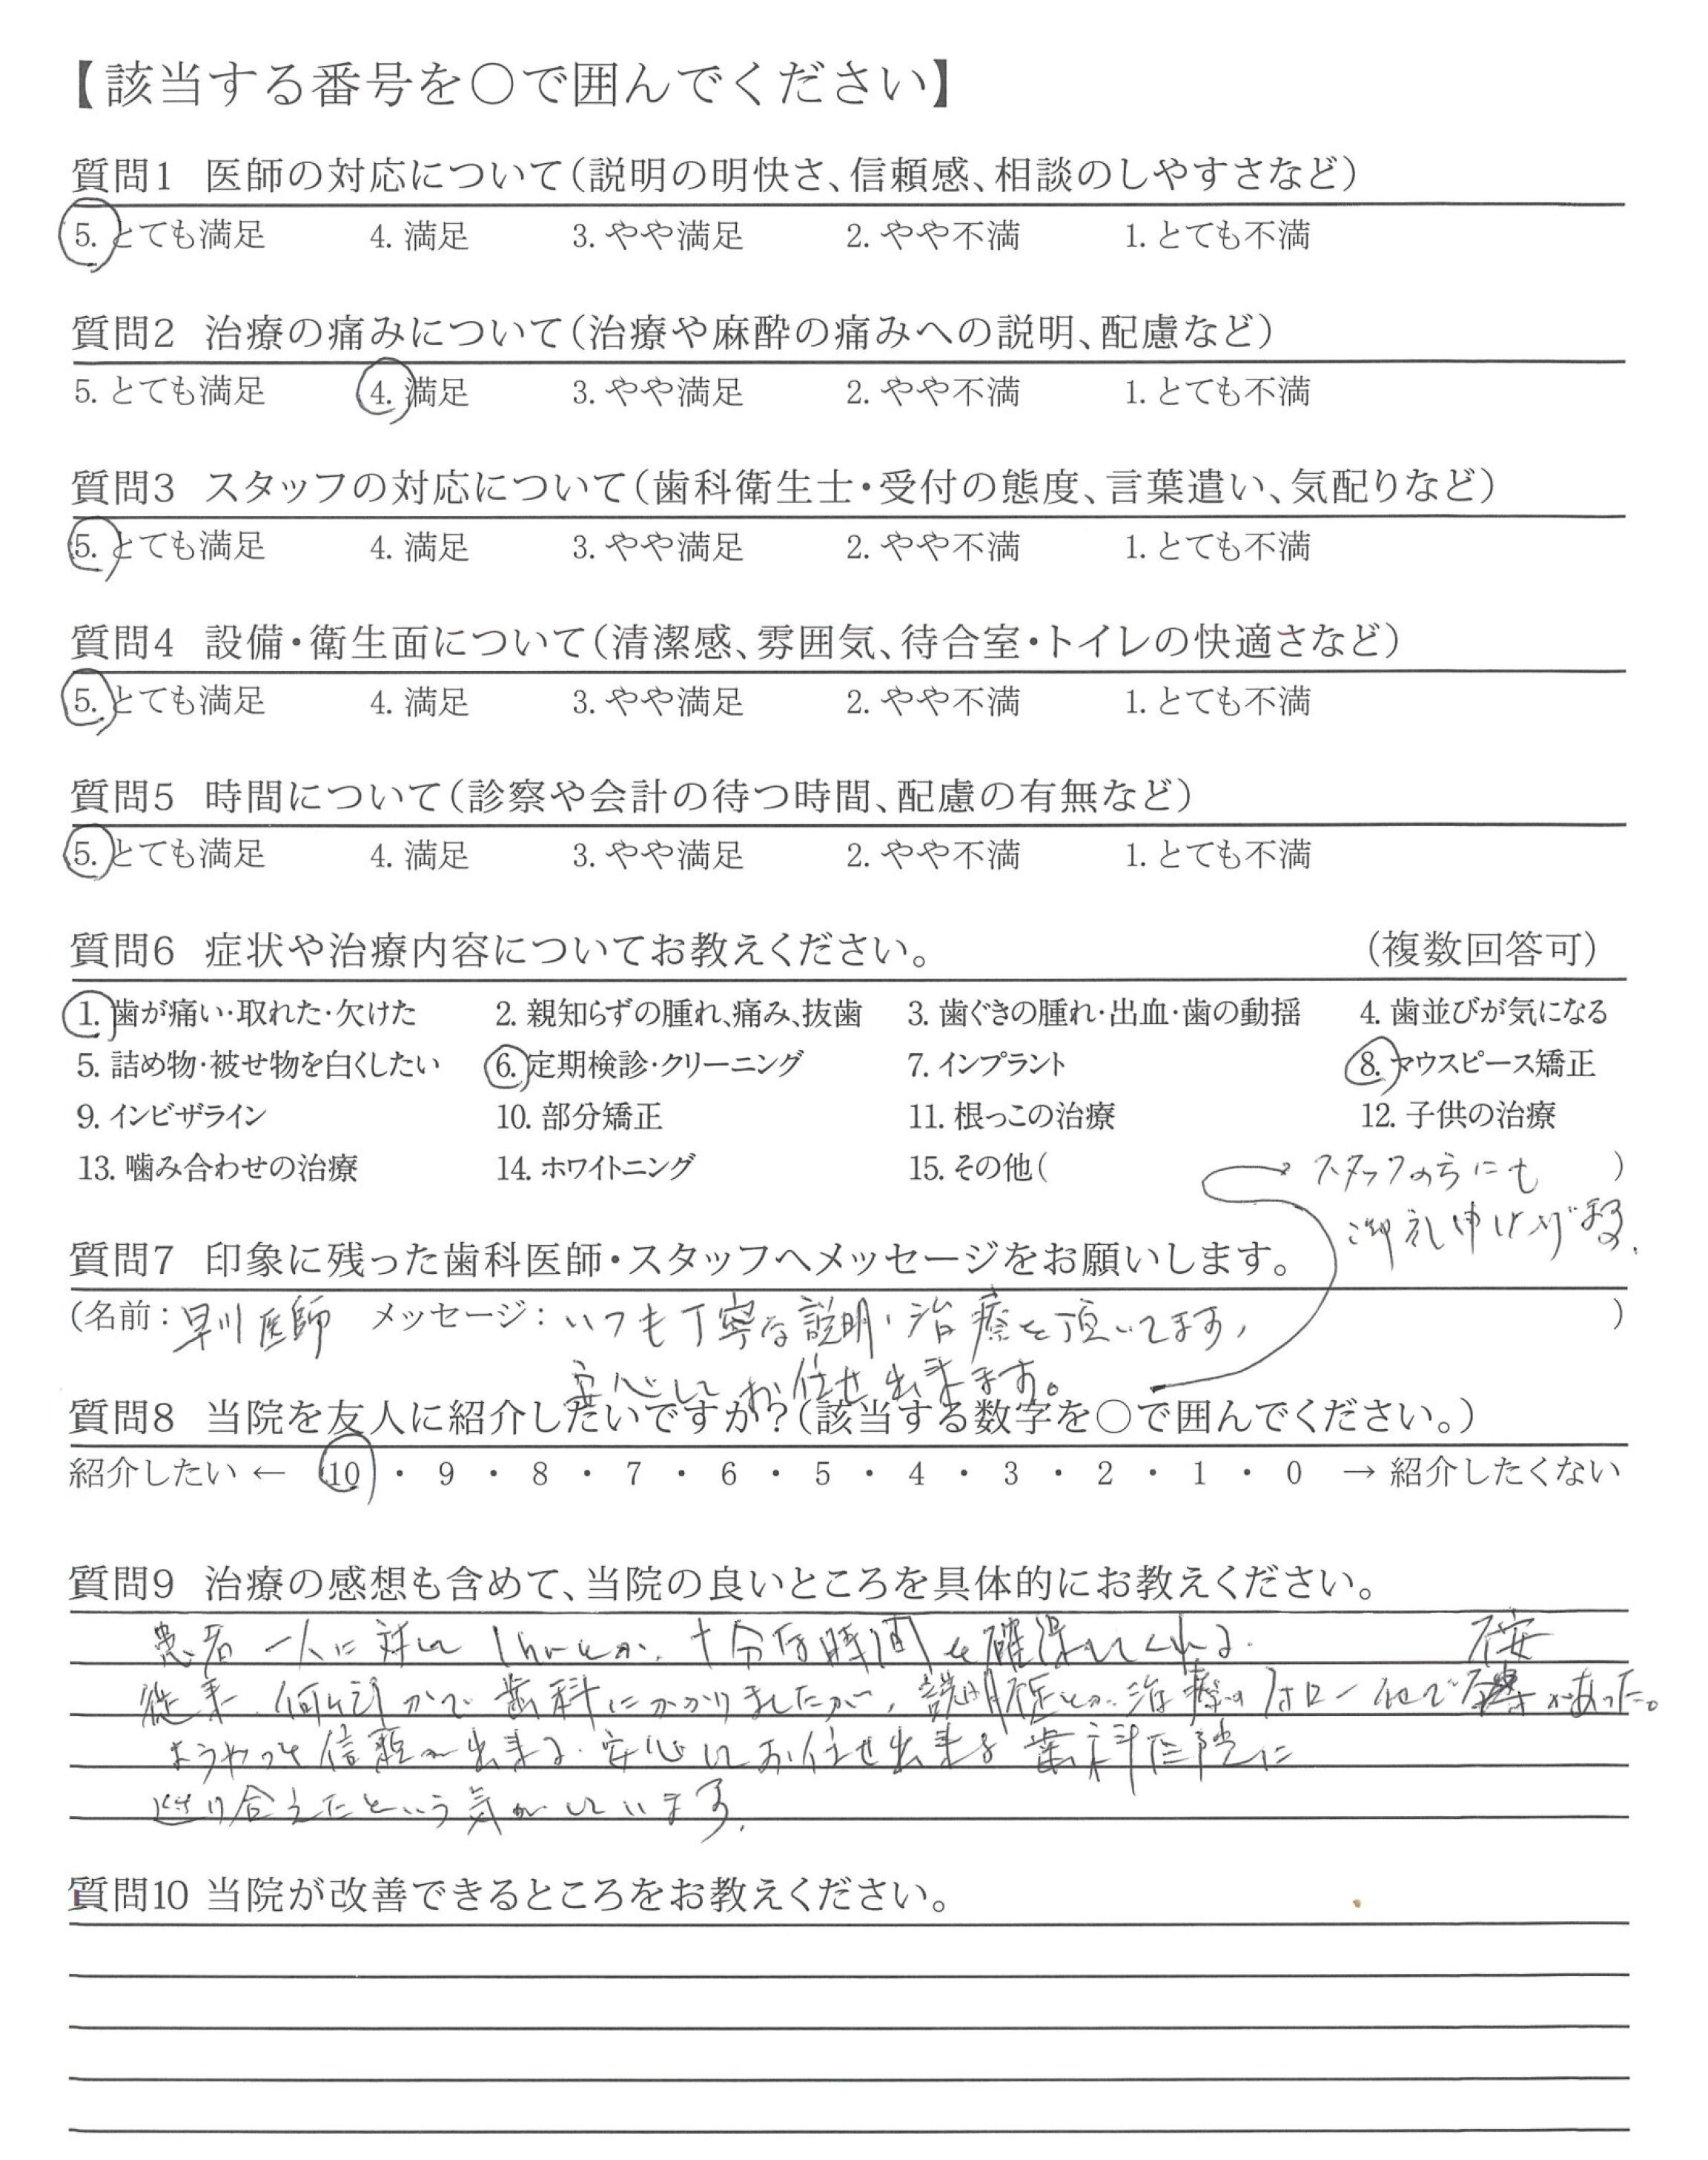 【該当する番号を○で囲んでください】
質問1 医師の対応について(説明の明快さ、信頼感、相談のしやすさなど)
5. とても満足 4. 満足 3. やや満足 2. やや不満 1. とても不満
質問2 治療の痛みについて(治療や麻酔の痛みへの説明、配慮など)
5. とても満足 4. 満足 3. やや満足 2. やや不満 1. とても不満
質問3 スタッフの対応について(歯科衛生士・受付の態度、言葉遣い、気配りなど)
5. とても満足 4. 満足 3. やや満足 2. やや不満 1. とても不満
質問4 設備・衛生面について(清潔感、雰囲気、待合室・トイレの快適さなど)
5. とても満足 4. 満足 3. やや満足 2. やや不満 1. とても不満
質問5 時間について(診察や会計の待つ時間、配慮の有無など)
5. とても満足 4. 満足 3. やや満足 2. やや不満 1. とても不満
質問6 症状や治療内容についてお教えください。 (複数回答可)
1. 歯が痛い・取れた・欠けた 2. 親知らずの腫れ、痛み、抜歯 3. 歯ぐきの腫れ・出血・歯の動揺 4. 歯並びが気になる
5. 詰め物・被せ物を白くしたい 6. 定期検診・クリーニング 7. インプラント 8. マウスピース矯正
9. インビザライン 10. 部分矯正 11. 根っこの治療 12. 子供の治療
13. 噛み合わせの治療 14. ホワイトニング 15. その他( スタッフの方にも )
御礼申し上げます.
質問7 印象に残った歯科医師・スタッフへメッセージをお願いします。
(名前:早川医師 メッセージ:いつも丁寧な説明・治療を頂いてます, )
安心してお任せ出来ます。
質問8 当院を友人に紹介したいですか?(該当する数字を○で囲んでください。)
紹介したい ← 10 ・ 9 ・ 8 ・ 7 ・ 6 ・ 5 ・ 4 ・ 3 ・ 2 ・ 1 ・ 0 → 紹介したくない
質問9 治療の感想も含めて、当院の良いところを具体的にお教えください。
患者一人に対して1hrとか、十分な時間を確保してくれる.
不安
従来、何ヶ所かで歯科にかかりましたが、説明とか治療のフォロー他でがあった。
ようやっと信頼が出来る、安心してお任せ出来る歯科医院に
巡り合えたという気がしています.
質問10 当院が改善できるところをお教えください。